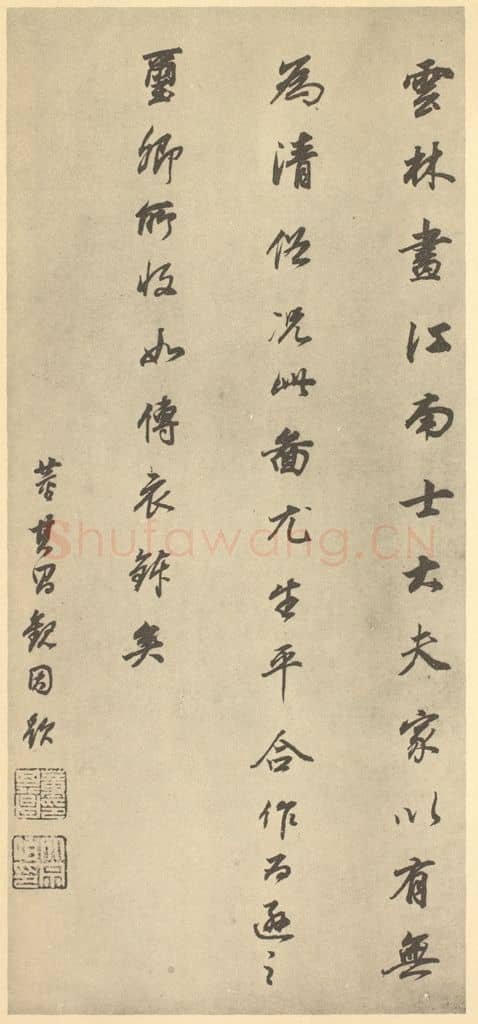 雲林畫江南士大夫家以有無
為清俗況此圖尤生平合作為遜之
璽卿所收如傳衣鉢矣
董其昌觀因題
Shufawang.CN